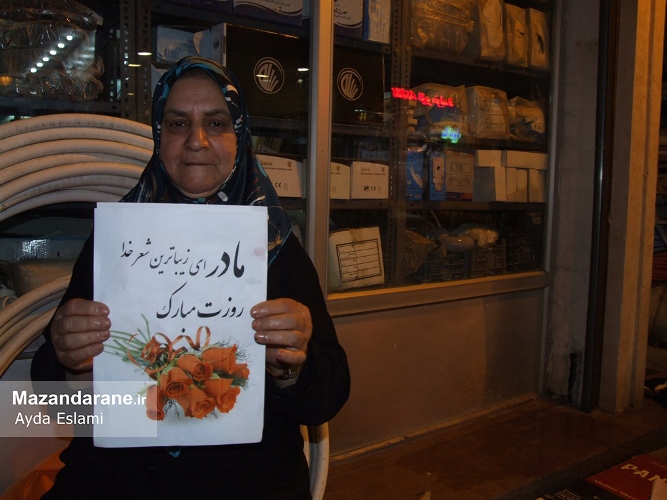 مادر ای زیباترین شعر خدا
روزت مبارک
Mazandarane.ir
Ayda Eslami
PAN